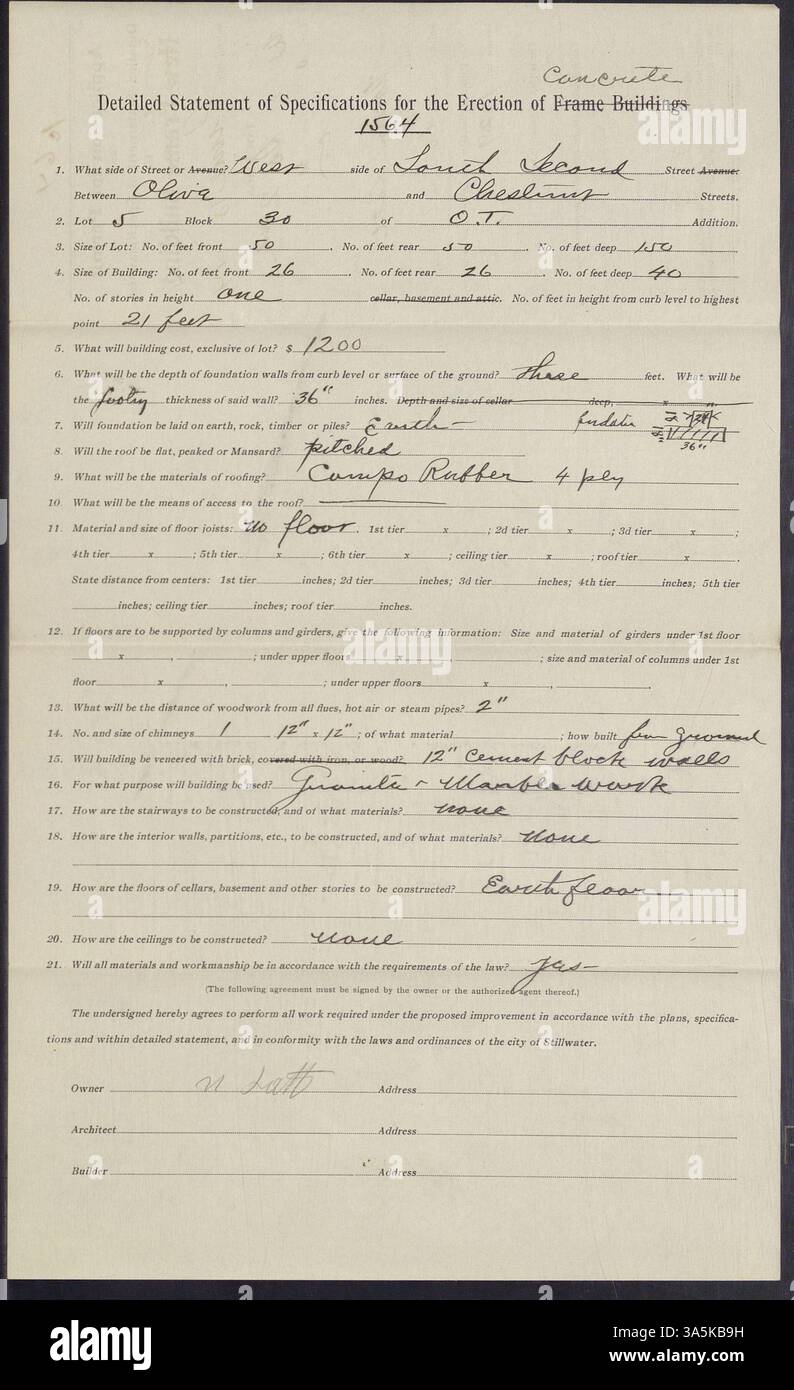 Concrete
Detailed Statement of Specifications for the Erection of Frame Buildings
1564
1. What side of Street or Avenue? West side of South Second Street Avenue.
Between Olive and Chestnut Streets.
2. Lot 5 Block 30 of O.T. Addition.
3. Size of Lot: No. of feet front 50. No. of feet rear 50. No. of feet deep 150
4. Size of Building: No. of feet front 26. No. of feet rear 26. No. of feet deep 40
No. of stories in height one cellar, basement and attic. No. of feet in height from curb level to highest
point 21 feet
5. What will building cost, exclusive of lot? $ 1200
6. What will be the depth of foundation walls from curb level or surface of the ground? three feet. What will be
the footing thickness of said wall? 36" inches. Depth and size of cellar deep, x
7. Will foundation be laid on earth, rock, timber or piles? Earth
36"
8. Will the roof be flat, peaked or Mansard? pitched
9. What will be the materials of roofing? Compo Rubber 4 ply
10. What will be the means of access to the roof?
11. Material and size of floor joists: no floor. 1st tier x ; 2d tier x ; 3d tier x ;
4th tier x ; 5th tier x ; 6th tier x ; ceiling tier x ; roof tier x .
State distance from centers: 1st tier inches; 2d tier inches; 3d tier inches; 4th tier inches; 5th tier
inches; ceiling tier inches; roof tier inches.
12. If floors are to be supported by columns and girders, give the following information: Size and material of girders under 1st floor
x , ; under upper floors x , ; size and material of columns under 1st
floor x , ; under upper floors x , .
13. What will be the distance of woodwork from all flues, hot air or steam pipes? 2"
14. No. and size of chimneys 1 12" x 12" ; of what material ; how built from ground
15. Will building be veneered with brick, covered with iron, or wood? 12" cement block walls
16. For what purpose will building be used? Granite & Marble work
17. How are the stairways to be constructed, and of what materials? none
18. How are the interior walls, partitions, etc., to be constructed, and of what materials? none
19. How are the floors of cellars, basement and other stories to be constructed? Earth floor
20. How are the ceilings to be constructed? none
21. Will all materials and workmanship be in accordance with the requirements of the law? yes
(The following agreement must be signed by the owner or the authorized agent thereof.)
The undersigned hereby agrees to perform all work required under the proposed improvement in accordance with the plans, specifica-
tions and within detailed statement, and in conformity with the laws and ordinances of the city of Stillwater.
Owner Address
Architect Address
Builder Address
alamy
Image ID: 3A5KB9H
www.alamy.com